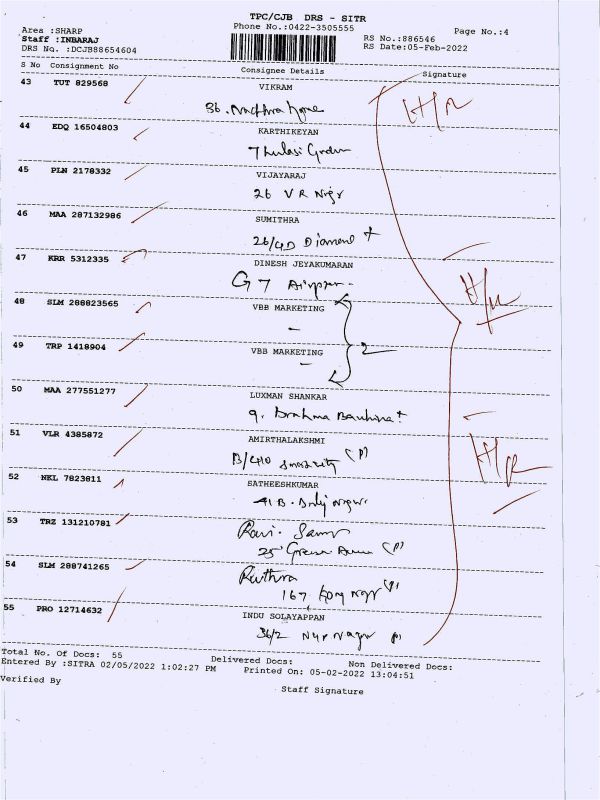 TPC/CJB DRS - SITR
Phone No.:0422-3505555
Area :SHARP
Page No.:4
Staff :INBARAJ
RS No.:886546
DRS No. :DCJB88654604
RS Date:05-Feb-2022
S No Consignment No Consignee Details Signature
43 TUT 829568 VIKRAM
36.
H/R
44 EDQ 16504803 KARTHIKEYAN
Thulasi
45 PLN 2178332 VIJAYARAJ
26 V R Nagr
46 MAA 287132986 SUMITHRA
26/4D Diamond
47 KRR 5312335 DINESH JEYAKUMARAN
G 7
48 SLM 288823565 VBB MARKETING
-
2
49 TRP 1418904 VBB MARKETING
-
50 MAA 277551277 LUXMAN SHANKAR
9. Brahma
51 VLR 4385872 AMIRTHALAKSHMI
(P)
H/R
52 NKL 7823811 SATHEESHKUMAR
41 B.
53 TRZ 131210781 Ravi.
25 Green (P)
54 SLM 288741265 Ruthra
167
55 PRO 12714632 INDU SOLAYAPPAN
36/2 Nagr
Total No. Of Docs: 55 Delivered Docs: Non Delivered Docs:
Entered By :SITRA 02/05/2022 1:02:27 PM Printed On: 05-02-2022 13:04:51
Verified By Staff Signature